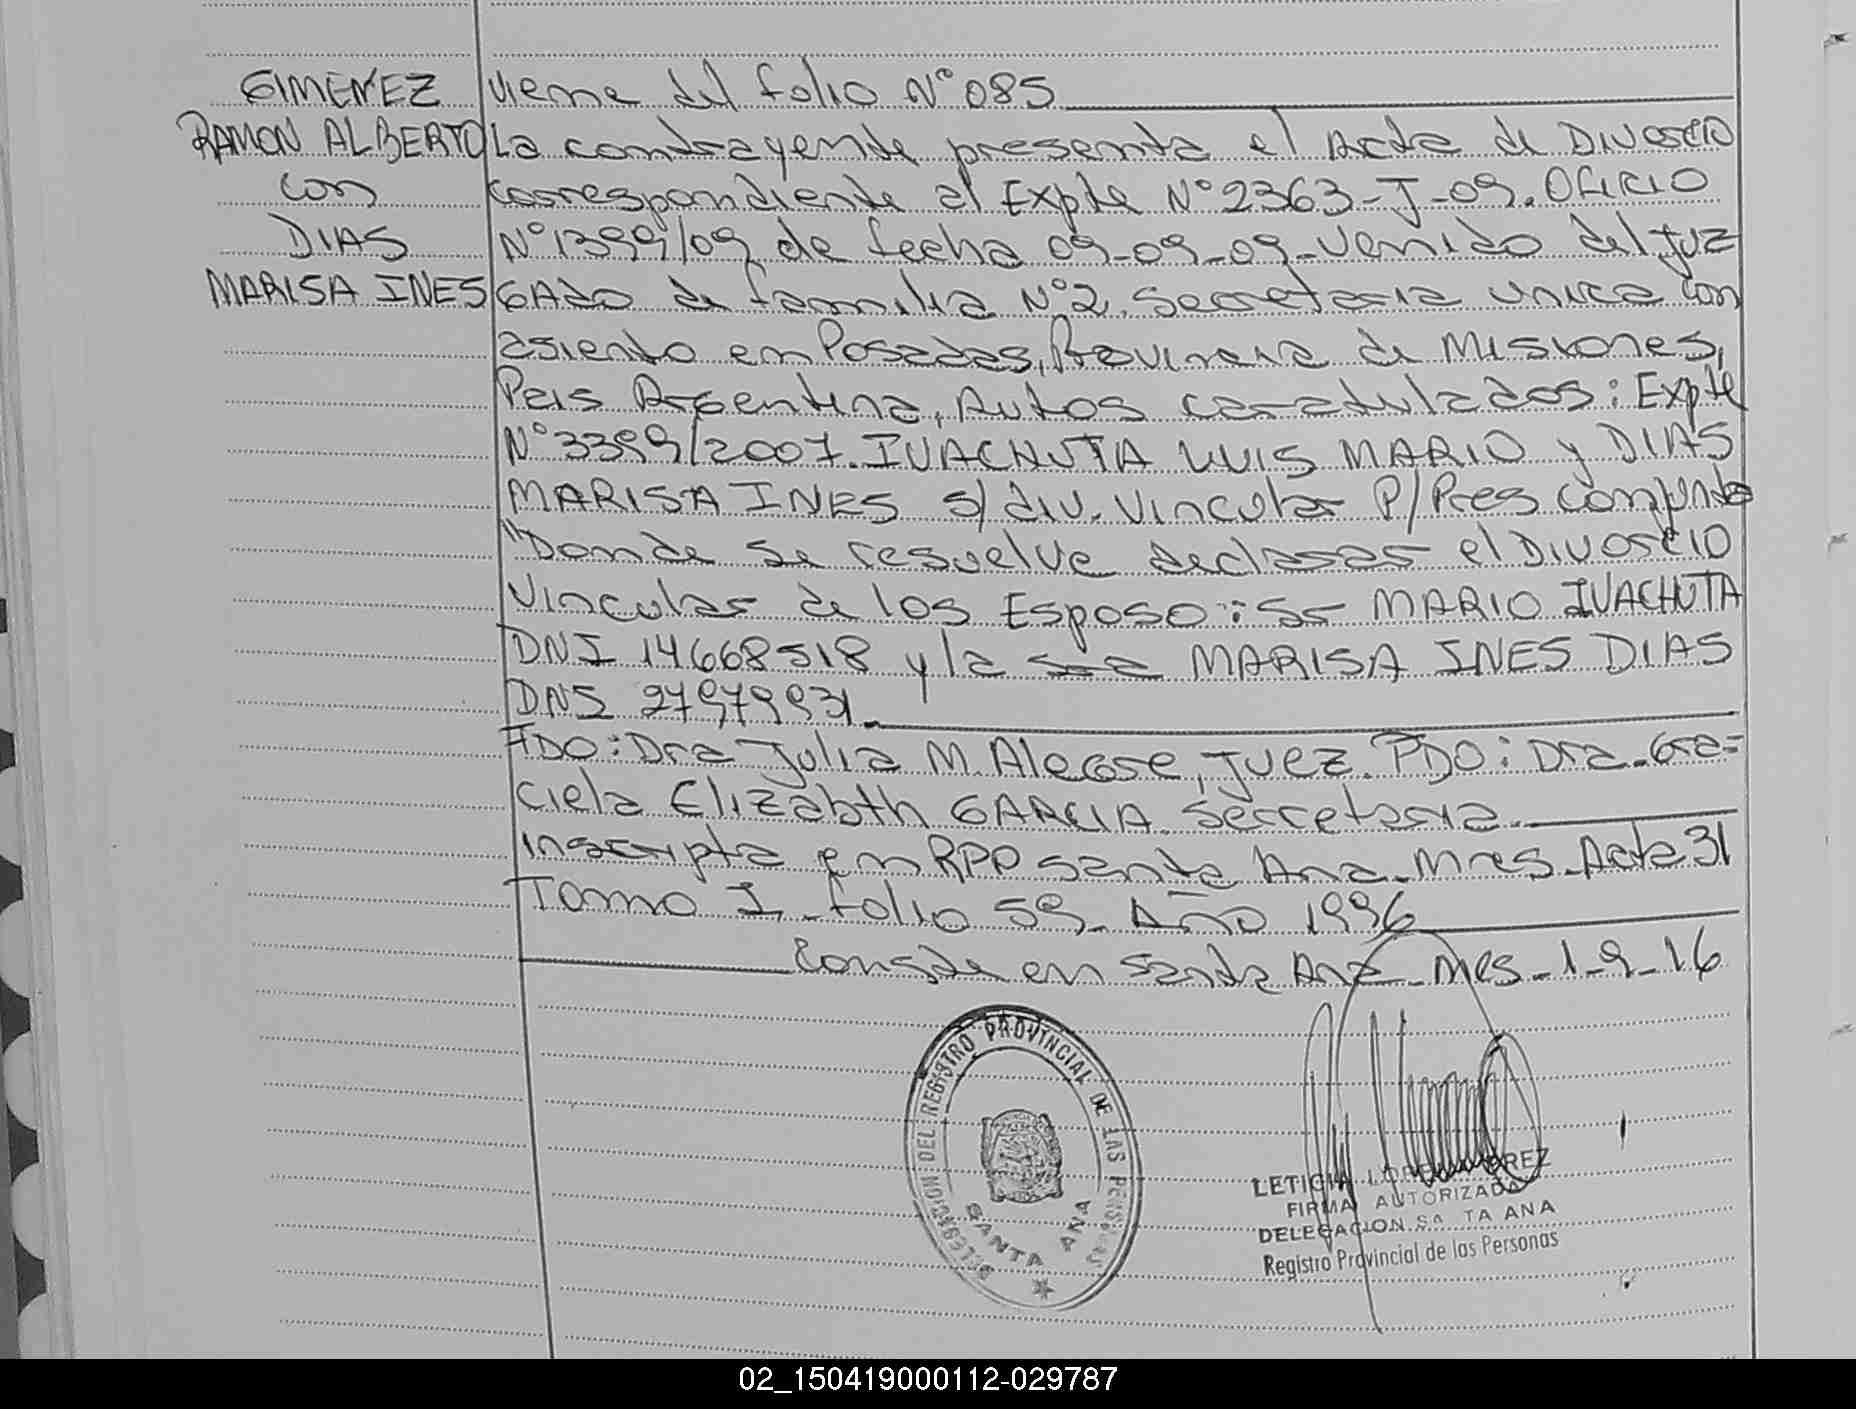 GIMENEZ
RAMON ALBERTO
con
DIAS
MARISA INES
viene del folio N° 085
La contrayente presenta el Acta de Divorcio
correspondiente al Expte N° 2363-J-09. OFICIO
N° 1399/09 de fecha 09-09-09-venido del Juz
GAdo de familia N° 2. Secretaria unica con
asiento en Posadas, Provincia de Misiones,
Pais Argentina, Autos caratulados: Expte
N° 3399/2007. IUACHUTA LUIS MARIO y DIAS
MARISA INES s/ div. Vincular P/Pres conjunta
"Donde se resuelve declarar el Divorcio
Vincular de los Esposo: Sr MARIO IUACHUTA
DNI 14668518 y la sra MARISA INES DIAS
DNI 27979931.
FDO: Dra Julia M. Alegre, Juez. FDO: Dra. Gra=
ciela Elizabth GARCIA. Secretaria.
Inscripta en RPP Santa Ana. Mnes. Acta 31
Tomo I, folio 59. Año 1996
Conste en Santa Ana. Mes-1-9-16
DELEGACION DEL REGISTRO PROVINCIAL DE LAS PERSONAS
SANTA ANA
LETICIA
FIRMA AUTORIZADA
DELEGACION SA TA ANA
Registro Provincial de las Personas
02_150419000112-029787